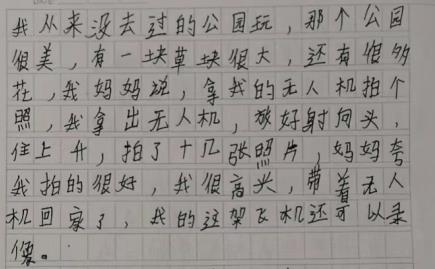 我从来没去过的公园玩，那个公园
很美，有一块草块很大，还有很多
花，我妈妈说，拿我的无人机拍个
照，我拿出无人机，放好射向头，
往上升，拍了十几张照片，妈妈夸
我拍的很好，我很高兴，带着无人
机回家了，我的这架飞机还可以录
像。